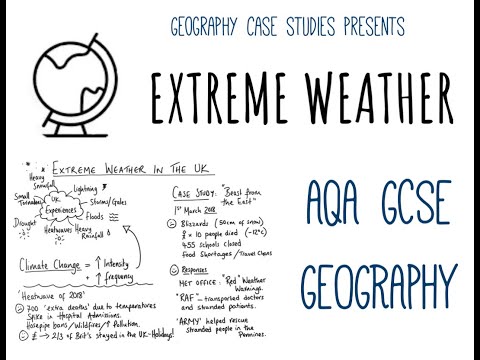 GEOGRAPHY CASE STUDIES PRESENTS
EXTREME WEATHER
AQA GCSE
GEOGRAPHY
EXTREME WEATHER IN THE UK
Heavy
Snowfall
Lightning
Small
Tornadoes
UK
Experiences
Storms/Gales
Floods
Drought
Heatwaves
Heavy
Rainfall
Climate Change = ↑ Intensity
+ ↑ frequency
'Heatwave of 2018'
700 'extra deaths' due to temperatures
Spike in Hospital Admissions.
Hosepipe bans/Wildfires/↑ Pollution.
£ → 2/3 of Brit's stayed in the UK-Holidays!
CASE STUDY: "Beast from
the East"
1st March 2018.
Blizzards (50cm of snow)
& × 10 people died (-12°c)
455 schools closed
food Shortages/Travel Chaos
Responses
MET OFFICE: "Red" Weather
Warnings.
"RAF" - transported doctors
and stranded patients.
'ARMY' helped rescue
stranded people in the
Pennines.